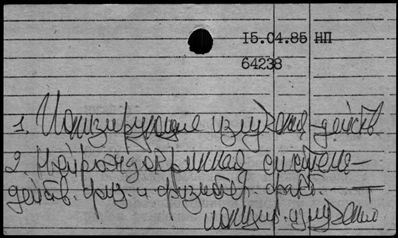 15.04.85 НП
64238
1. Ионизирующие излучения-действ
2. Нейроэндокринная система-
действ. физ. и физиотер. факт. —
ионизир. излучения